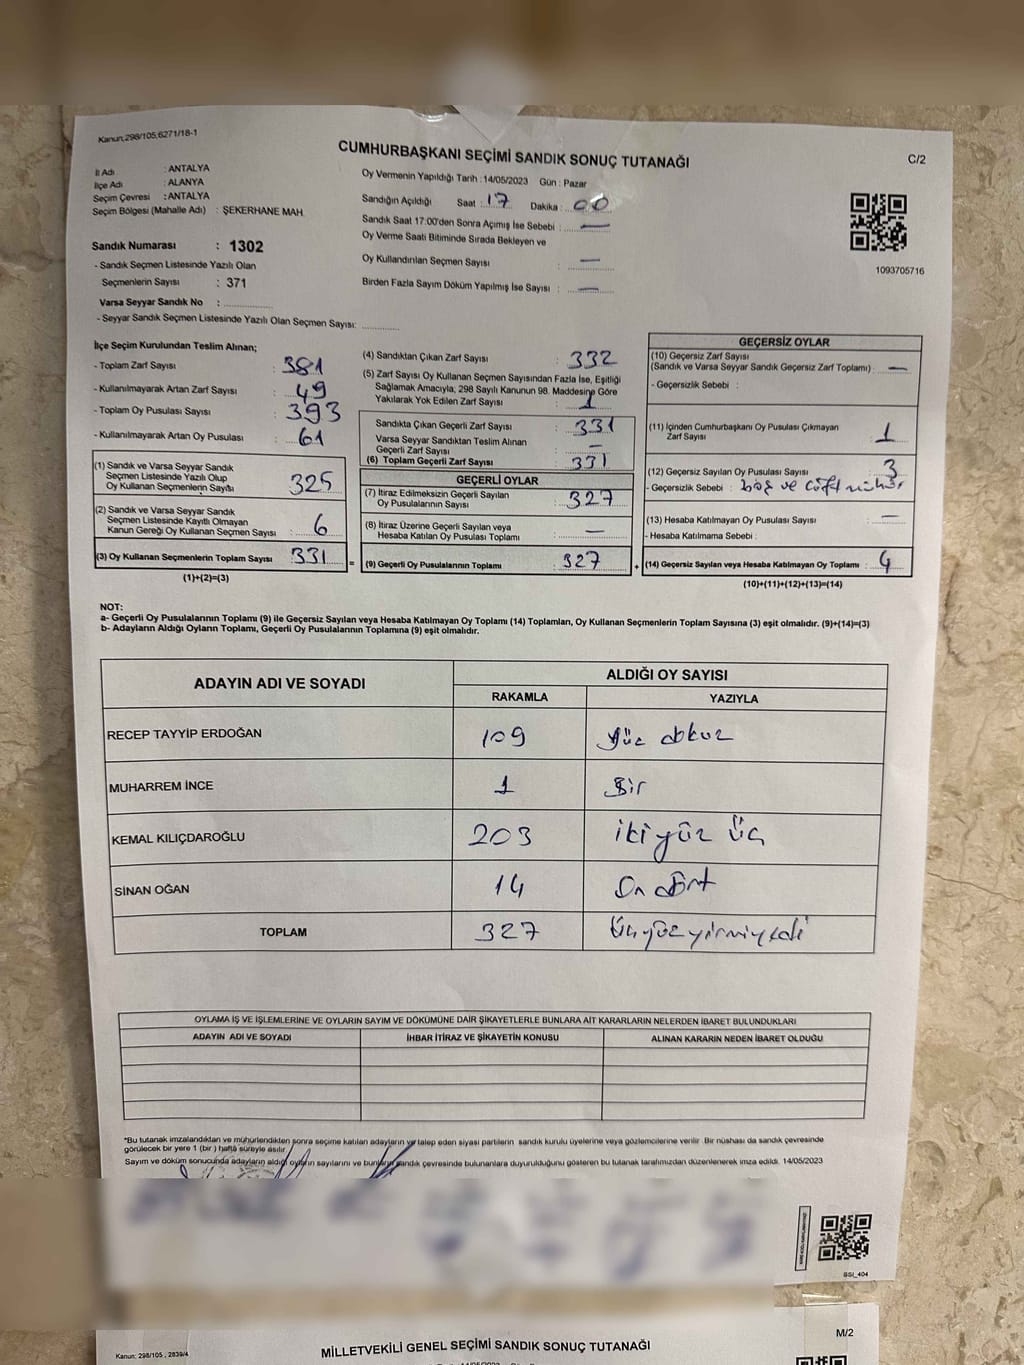 Kanun;298/105,6271/18-1
CUMHURBAŞKANI SEÇİMİ SANDIK SONUÇ TUTANAĞI
C/2
İl Adı : ANTALYA
İlçe Adı : ALANYA
Seçim Çevresi : ANTALYA
Seçim Bölgesi (Mahalle Adı) : ŞEKERHANE MAH.
Sandık Numarası : 1302
- Sandık Seçmen Listesinde Yazılı Olan
Seçmenlerin Sayısı : 371
Varsa Seyyar Sandık No :
- Seyyar Sandık Seçmen Listesinde Yazılı Olan Seçmen Sayısı:
Oy Vermenin Yapıldığı Tarih : 14/05/2023 Gün : Pazar
Sandığın Açıldığı Saat : 17 Dakika : 00
Sandık Saat 17:00'den Sonra Açımış İse Sebebi : —
Oy Verme Saati Bitiminde Sırada Bekleyen ve
Oy Kullandırılan Seçmen Sayısı : —
Birden Fazla Sayım Döküm Yapılmış İse Sayısı : —
1093705716
İlçe Seçim Kurulundan Teslim Alınan;
- Toplam Zarf Sayısı : 381
- Kullanılmayarak Artan Zarf Sayısı : 49
- Toplam Oy Pusulası Sayısı : 393
- Kullanılmayarak Artan Oy Pusulası : 61
(1) Sandık ve Varsa Seyyar Sandık
Seçmen Listesinde Yazılı Olup
Oy Kullanan Seçmenlerin Sayısı : 325
(2) Sandık ve Varsa Seyyar Sandık
Seçmen Listesinde Kayıtlı Olmayan
Kanun Gereği Oy Kullanan Seçmen Sayısı : 6
(3) Oy Kullanan Seçmenlerin Toplam Sayısı : 331
(1)+(2)=(3)
(4) Sandıktan Çıkan Zarf Sayısı : 332
(5) Zarf Sayısı Oy Kullanan Seçmen Sayısından Fazla İse, Eşitliği
Sağlamak Amacıyla, 298 Sayılı Kanunun 98. Maddesine Göre
Yakılarak Yok Edilen Zarf Sayısı : 1
Sandıkta Çıkan Geçerli Zarf Sayısı : 331
Varsa Seyyar Sandıktan Teslim Alınan
Geçerli Zarf Sayısı : —
(6) Toplam Geçerli Zarf Sayısı : 331
GEÇERLİ OYLAR
(7) İtiraz Edilmeksizin Geçerli Sayılan
Oy Pusulalarının Sayısı : 327
(8) İtiraz Üzerine Geçerli Sayılan veya
Hesaba Katılan Oy Pusulası Toplamı : —
= (9) Geçerli Oy Pusulalarının Toplamı : 327
GEÇERSİZ OYLAR
(10) Geçersiz Zarf Sayısı
(Sandık ve Varsa Seyyar Sandık Geçersiz Zarf Toplamı) : —
- Geçersizlik Sebebi :
(11) İçinden Cumhurbaşkanı Oy Pusulası Çıkmayan
Zarf Sayısı : 1
(12) Geçersiz Sayılan Oy Pusulası Sayısı : 3
- Geçersizlik Sebebi : boş ve çift mühür
(13) Hesaba Katılmayan Oy Pusulası Sayısı : —
- Hesaba Katılmama Sebebi :
+ (14) Geçersiz Sayılan veya Hesaba Katılmayan Oy Toplamı : 4
(10)+(11)+(12)+(13)=(14)
NOT:
a- Geçerli Oy Pusulalarının Toplamı (9) ile Geçersiz Sayılan veya Hesaba Katılmayan Oy Toplamı (14) Toplamları, Oy Kullanan Seçmenlerin Toplam Sayısına (3) eşit olmalıdır. (9)+(14)=(3)
b- Adayların Aldığı Oyların Toplamı, Geçerli Oy Pusulalarının Toplamına (9) eşit olmalıdır.
ADAYIN ADI VE SOYADI ALDIĞI OY SAYISI
RAKAMLA YAZIYLA
RECEP TAYYİP ERDOĞAN 109 yüz dokuz
MUHARREM İNCE 1 Bir
KEMAL KILIÇDAROĞLU 203 iki yüz üç
SİNAN OĞAN 14 On dört
TOPLAM 327 Üçyüzyirmiyedi
OYLAMA İŞ VE İŞLEMLERİNE VE OYLARIN SAYIM VE DÖKÜMÜNE DAİR ŞİKAYETLERLE BUNLARA AİT KARARLARIN NELERDEN İBARET BULUNDUKLARI
ADAYIN ADI VE SOYADI İHBAR İTİRAZ VE ŞİKAYETİN KONUSU ALINAN KARARIN NEDEN İBARET OLDUĞU
*Bu tutanak imzalandıktan ve mühürlendikten sonra seçime katılan adayların ve talep eden siyasi partilerin sandık kurulu üyelerine veya gözlemcilerine verilir. Bir nüshası da sandık çevresinde
görülecek bir yere 1 (bir) hafta süreyle asılır.
Sayım ve döküm sonucunda adayların aldığı oyların sayılarını ve bunların sandık çevresinde bulunanlara duyurulduğunu gösteren bu tutanak tarafımızdan düzenlenerek imza edildi. 14/05/2023
SSI_404
M/2
Kanun: 298/105 , 2839/4
MİLLETVEKİLİ GENEL SEÇİMİ SANDIK SONUÇ TUTANAĞI